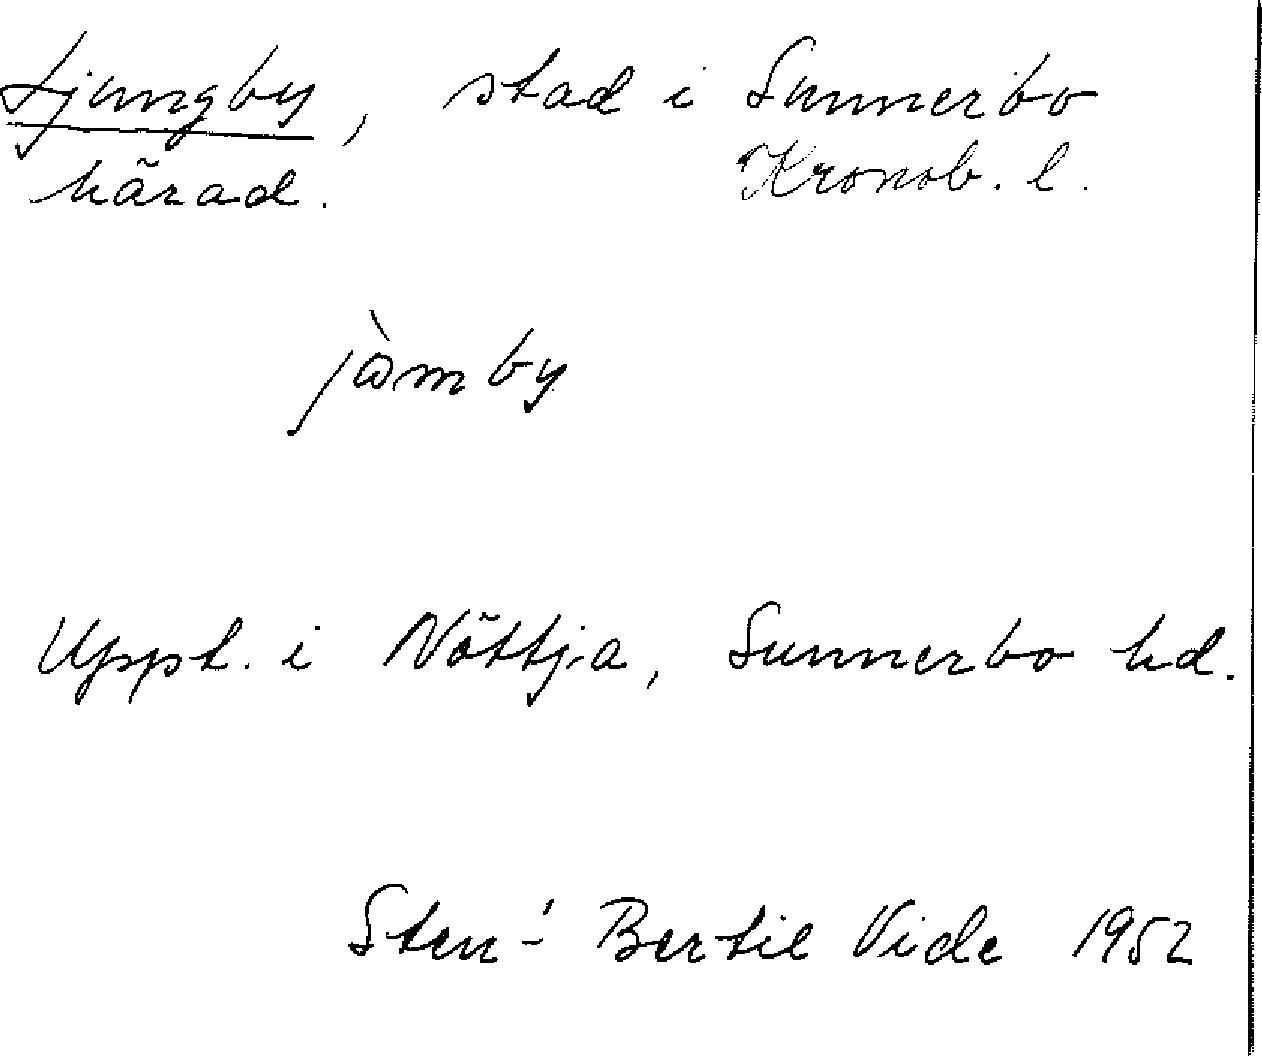 Ljungby, stad i Sunnerbo
härad. Kronob. l.
jåmby
Uppt. i Nöttja, Sunnerbo hd.
Sten-Bertil Vide 1952